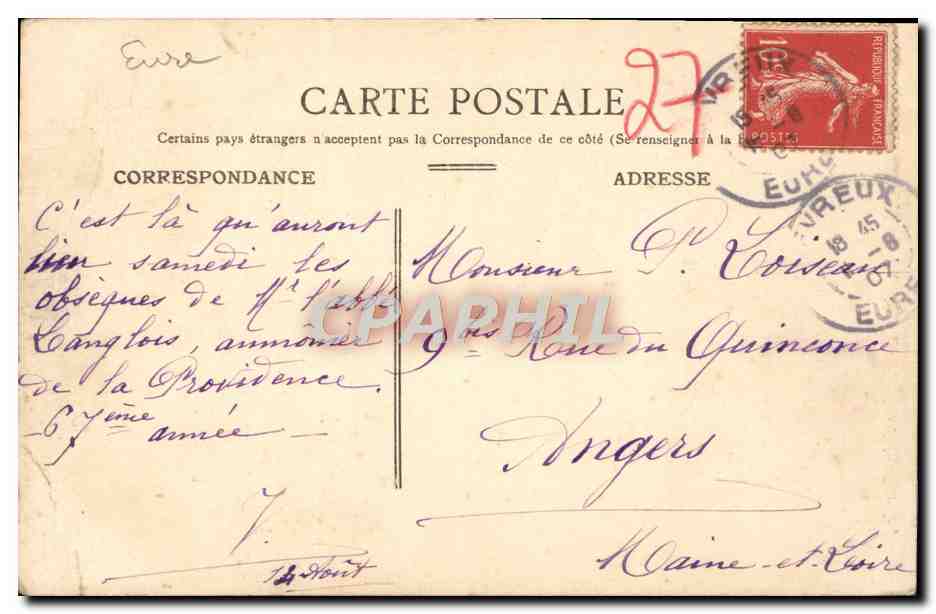 Eure
27
CARTE POSTALE
Certains pays étrangers n'acceptent pas la Correspondance de ce côté (Se renseigner à la
CORRESPONDANCE
ADRESSE
RÉPUBLIQUE FRANÇAISE
10c
POSTES
EVREUX
18 45
-8
07
EURE
C'est là qu'auront
lieu samedi les
obsèques de Mr l'abbé
Langlois, aumônier
de la Providence.
- 67ème année -
J.
14 Août
Monsieur P. Loiseau
9bis Rue du Quinconce
Angers
Maine-et-Loire
CPAPHIL